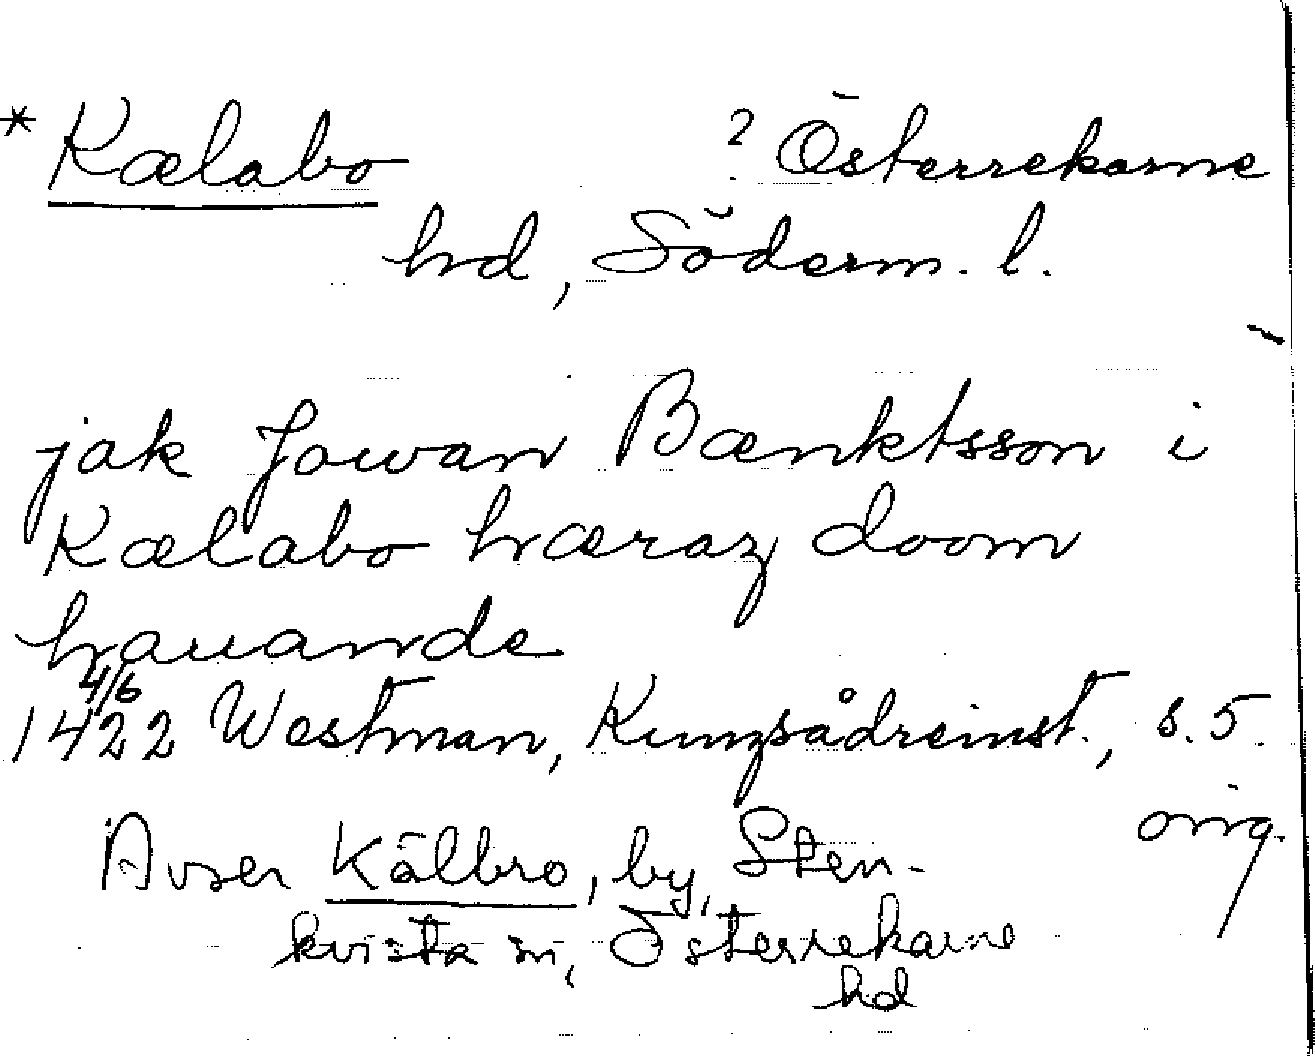 * Kælabo ? Österrekarne
hd, Söderm. l.
jak Jowan Bænktsson i
Kælabo hæraz doom
hauande
4/6
1422 Westman, Kungsådreinst., s. 5.
orig.
Avser Kälbro, by, Sten-
kvista sn, Österrekarne
hd